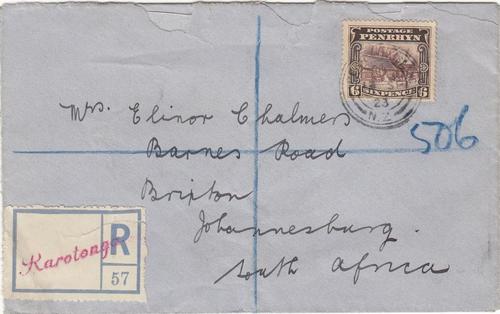 POSTAGE
PENRHYN
6 SIXPENCE 6
23
N.Z.
Mrs. Elinor Chalmers
506
Barnes Road
Brixton
Johannesburg.
South Africa
Rarotonga
R
57